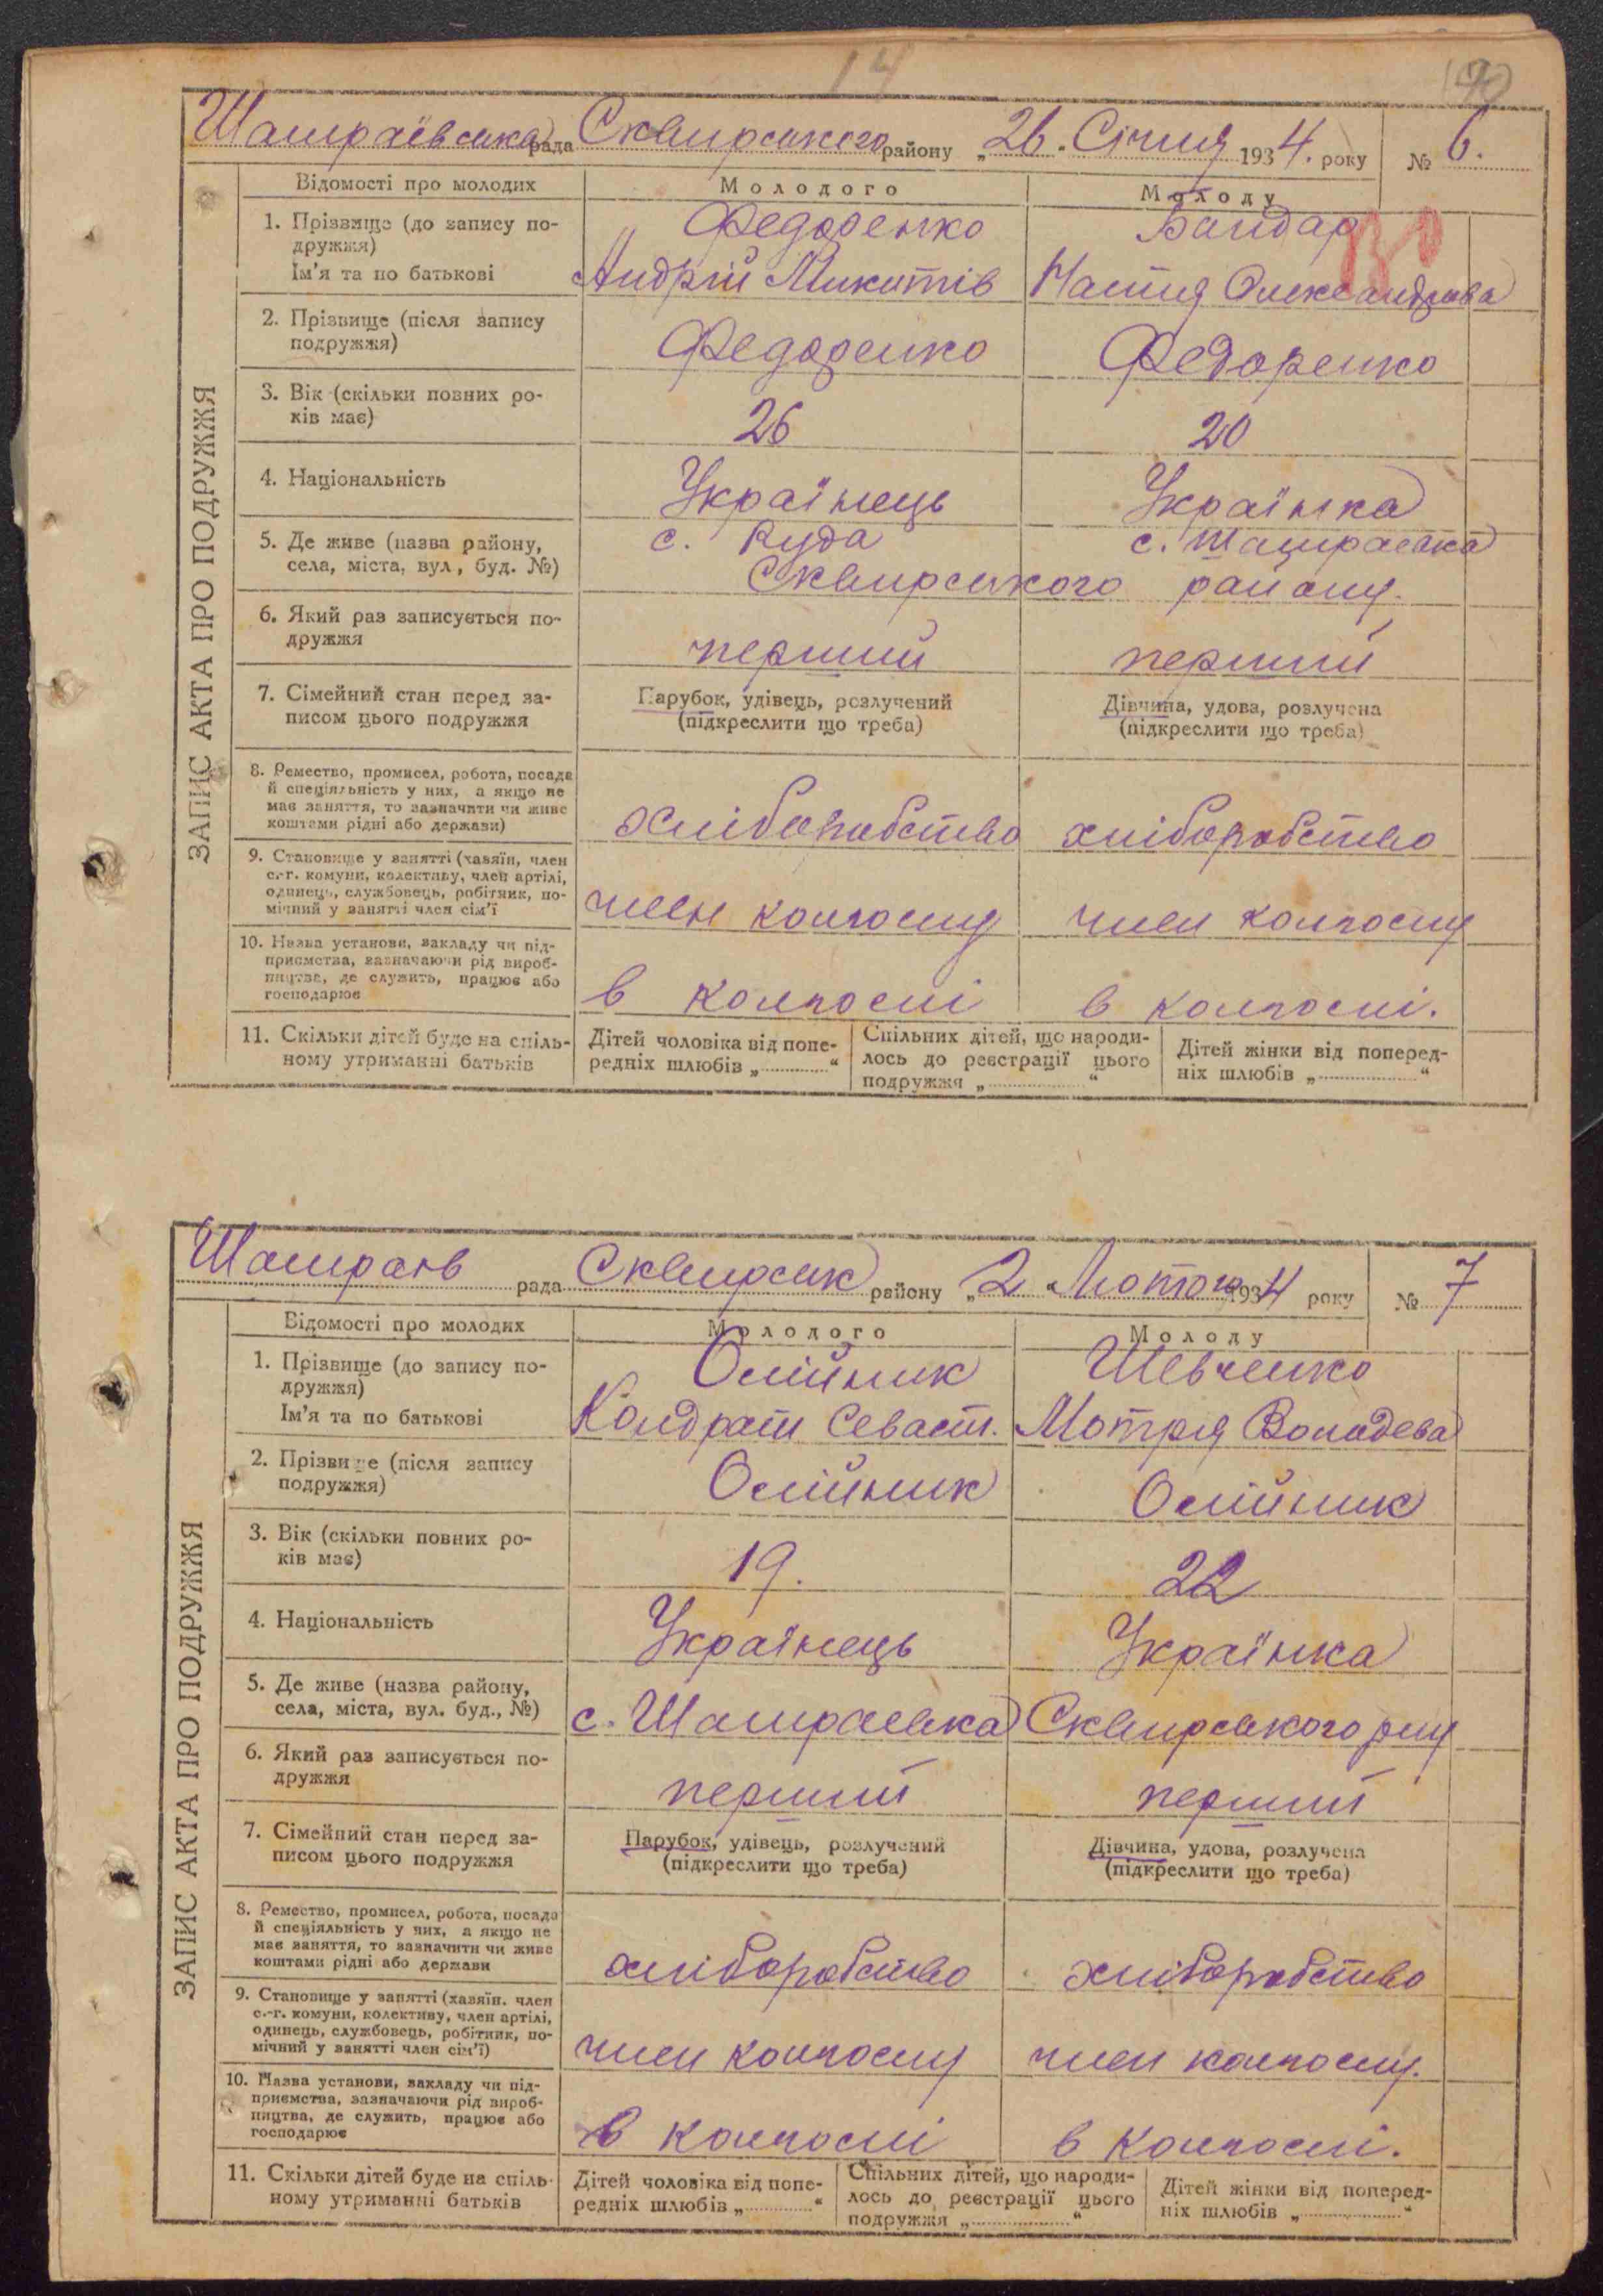 14
190
Шамраївська рада Сквирського району „26. Січня 1934. року № 6.
ЗАПИС АКТА ПРО ПОДРУЖЖЯ
Відомості про молодих Молодого Молоду
1. Прізвище (до запису по- Федоренко Бондар
дружжя)
Ім'я та по батькові Андрій Микитів Настя Олександрова
2. Прізвище (після запису
подружжя) Федоренко Федоренко
3. Вік (скільки повних ро-
ків має) 26 20
4. Національність Українець Українка
5. Де живе (назва району, с. Руда с. Шамраєвка
села, міста, вул, буд. №) Сквирського району.
6. Який раз записується по-
дружжя перший перший
7. Сімейний стан перед за- Парубок, удівець, розлучений Дівчина, удова, розлучена
писом цього подружжя (підкреслити що треба) (підкреслити що треба)
8. Ремество, промисел, робота, посада
й спеціяльність у них, а якщо не
має заняття, то зазначити чи живе
коштами рідні або держави) хліборобство хліборобство
9. Становище у занятті (хазяїн, член
с.-г. комуни, колективу, член артілі,
одинець, службовець, робітник, по-
мічний у занятті член сім'ї член колгоспу член колгоспу
10. Назва установи, закладу чи під-
приємства, зазначаючи рід вироб-
ництва, де служить, працює або
господарює в колгоспі в колгоспі.
11. Скільки дітей буде на спіль-
ному утриманні батьків
Дітей чоловіка від попе-
редніх шлюбів „ “
Спільних дітей, що народи-
лось до реєстрації цього
подружжя „ “
Дітей жінки від поперед-
ніх шлюбів „ “
Шамраїв рада Сквирськ району „2 Лютого 1934 року № 7
ЗАПИС АКТА ПРО ПОДРУЖЖЯ
Відомості про молодих Молодого Молоду
1. Прізвище (до запису по- Олійник Шевченко
дружжя)
Ім'я та по батькові Кондрат Севаст. Мотря
2. Прізвище (після запису
подружжя) Олійник Олійник
3. Вік (скільки повних ро-
ків має) 19. 22
4. Національність Українець Українка
5. Де живе (назва району,
села, міста, вул. буд., №) с. Шамраєвка Сквирського р-ну
6. Який раз записується по-
дружжя перший перший
7. Сімейний стан перед за- Парубок, удівець, розлучений Дівчина, удова, розлучена
писом цього подружжя (підкреслити що треба) (підкреслити що треба)
8. Ремество, промисел, робота, посада
й спеціяльність у них, а якщо не
має заняття, то зазначити чи живе
коштами рідні або держави хліборобство хліборобство
9. Становище у занятті (хазяїн. член
с.-г. комуни, колективу, член артілі,
одинець, службовець, робітник, по-
мічний у занятті член сім'ї) член колгоспу член колгоспу.
10. Назва установи, закладу чи під-
приємства, зазначаючи рід вироб-
ництва, де служить, працює або
господарює в колгоспі в колгоспі.
11. Скільки дітей буде на спіль-
ному утриманні батьків
Дітей чоловіка від попе-
редніх шлюбів „ “
Спільних дітей, що народи-
лось до реєстрації цього
подружжя „ “
Дітей жінки від поперед-
ніх шлюбів „ “